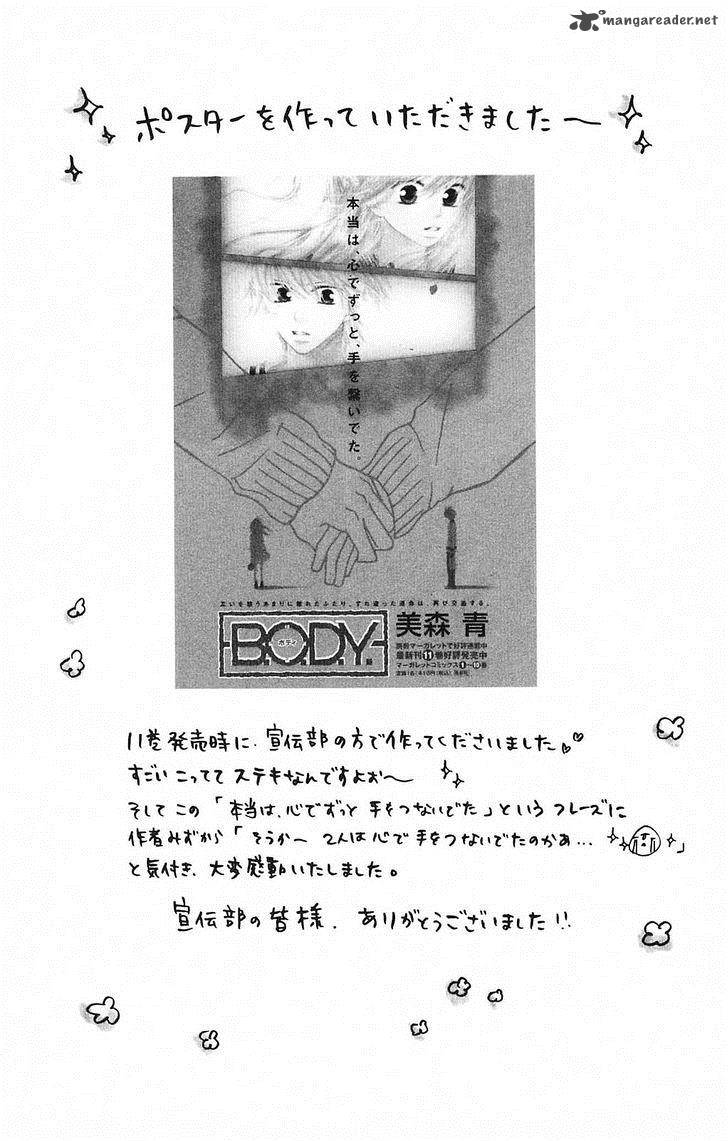 mangareader.net
ポスターを作っていただきました〜
本当は、心でずっと、手を繋いでた。
互いを想うあまりに離れたふたり。すれ違った運命は、再び交差する。
B.O.D.Y.
ボディ
美森 青
別冊マーガレットで好評連載中
最新刊11巻好評発売中
マーガレットコミックス1〜10巻
11巻発売時に、宣伝部の方で作ってくださいました
すごいこっててステキなんですよぉ〜
そしてこの「本当は、心でずっと手をつないでた」というフレーズに
作者みずから「そうか〜2人は心で手をつないでたのかぁ…」
と気付き、大変感動いたしました。
宣伝部の皆様、ありがとうございました!!